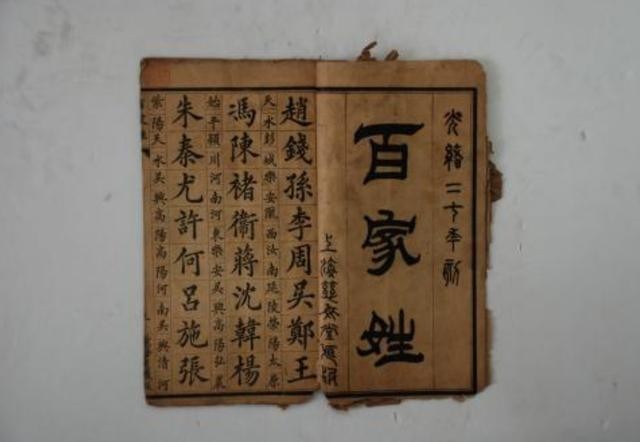 光緒二十年刻
百家姓
上海文堂
趙錢孫李周吳鄭王
天水彭城樂安隴西汝南延陵滎陽太原
馮陳褚衛蔣沈韓楊
始平潁川河南河東樂安吳興南陽弘農
朱秦尤許何呂施張
紫陽天水吳興高陽高陽河南吳興清河